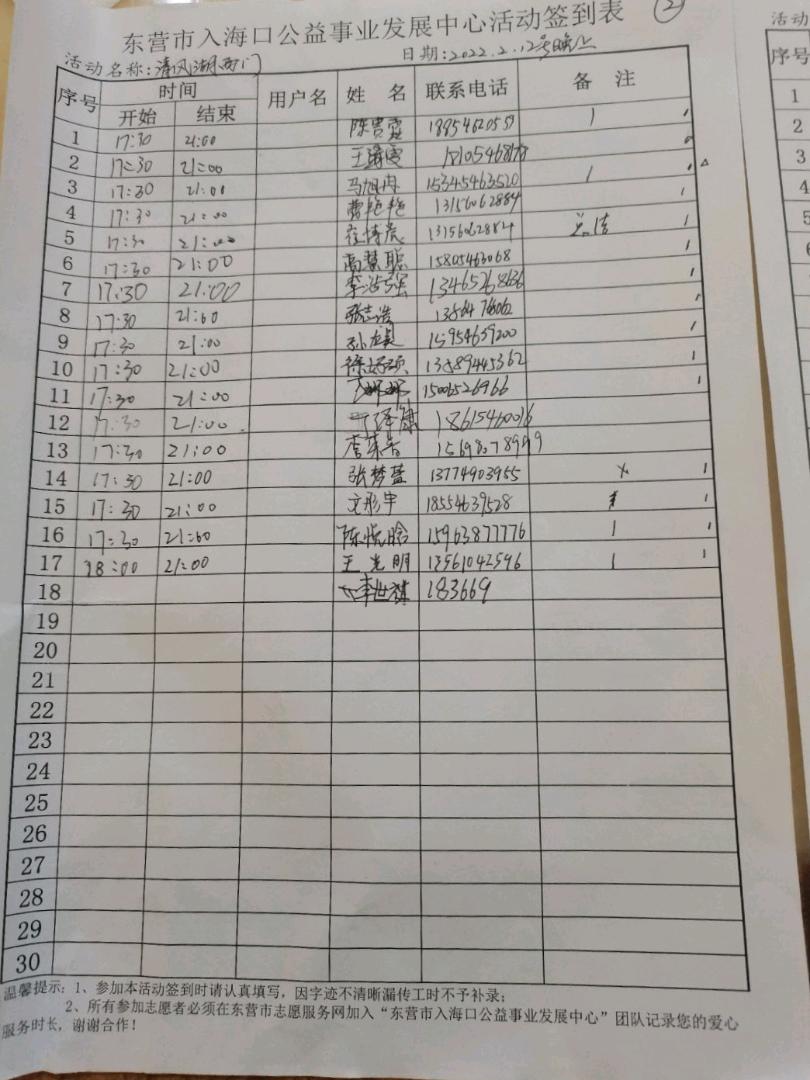 ②
东营市入海口公益事业发展中心活动签到表
活动名称:清风湖西门 日期:2022.2.12号晚上
序号 时间 用户名 姓 名 联系电话 备 注
开始 结束
1 17:30 21:00 陈贵霞
2 17:30 21:00 王
3 17:30 21:00 马旭冉 15345463520
4 17:30 21:00 曹艳艳 13156062884
5 17:30 21:00 崔博辰 13156062884 总结
6 17:30 21:00 高慧聪 15805463068
7 17:30 21:00 李浩强 13465268636
8 17:30 21:00 张志浩
9 17:30 21:00 15954659200
10 17:30 21:00 徐好硕 13589445362
11 17:30 21:00 娜娜 15006526966
12 17:30 21:00 康 18615460016
13 17:30 21:00 15698078999
14 17:30 21:00 张梦蓝 13774903955
15 17:30 21:00 文彤宇 18554639528
16 17:30 21:00 陈悦晗 15963877776
17 18:00 21:00 王光明 13561042596
18 李世祺 183669
19
20
21
22
23
24
25
26
27
28
29
30
温馨提示:1、参加本活动签到时请认真填写,因字迹不清晰漏传工时不予补录;
2、所有参加志愿者必须在东营市志愿服务网加入“东营市入海口公益事业发展中心”团队记录您的爱心
服务时长,谢谢合作!
活动
序号
1
2
3
4
5